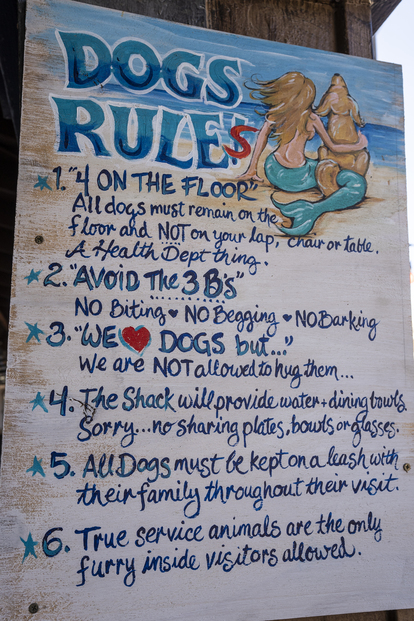 DOGS
RULES
1. "4 ON THE FLOOR"
All dogs must remain on the
floor and NOT on your lap, chair or table.
A Health Dept thing.
2. "AVOID The 3 B's"
NO Biting ♥ NO Begging ♥ NO Barking
3. "WE ♥ DOGS but..."
We are NOT allowed to hug them...
4. The Shack will provide water + dining bowls.
Sorry... no sharing plates, bowls or glasses.
5. All Dogs must be kept on a leash with
their family throughout their visit.
6. True service animals are the only
furry inside visitors allowed.